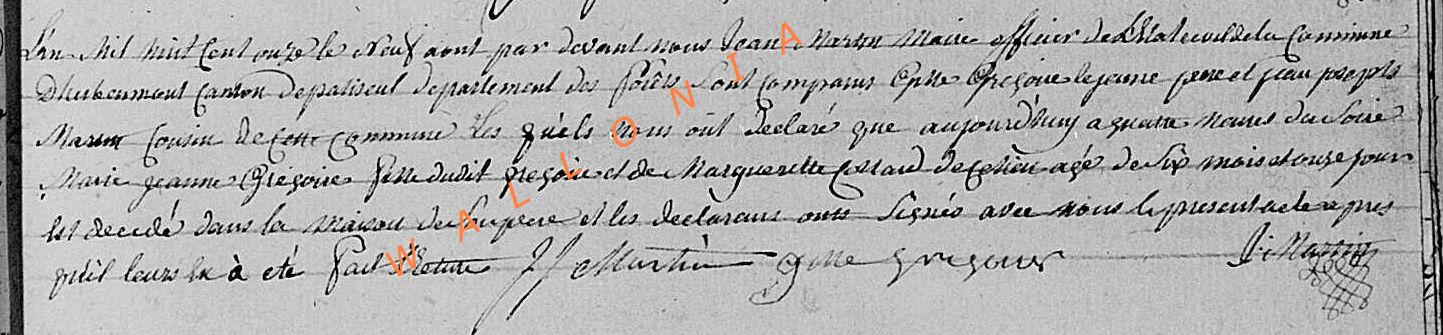 L'An Mil huit Cent onze le Neuf aout par devant nous Jean Martin Maire officier de L'Etat civil de la Commune
D'huberment Canton de paliseul departement des Forêts Sont Comparus Gille Gregoire le jeune pere et jean joseph
Martin Cousin de Cette Commune Les quéls Nous oñt declaré que aujourd'huy a quatre heures du Soire
Marie jeanne Gregoire fille dudit gregoire et de Marguerette Collard de ce lieu agé de Six mois et onze jour
Est decedé dans la Maison de Son pere et les declarans onts Signés avec nous le present acte apres
qu'il leurs en à eté fait Lecture J J Martin gille gregoire J: Martin
WALLONIA